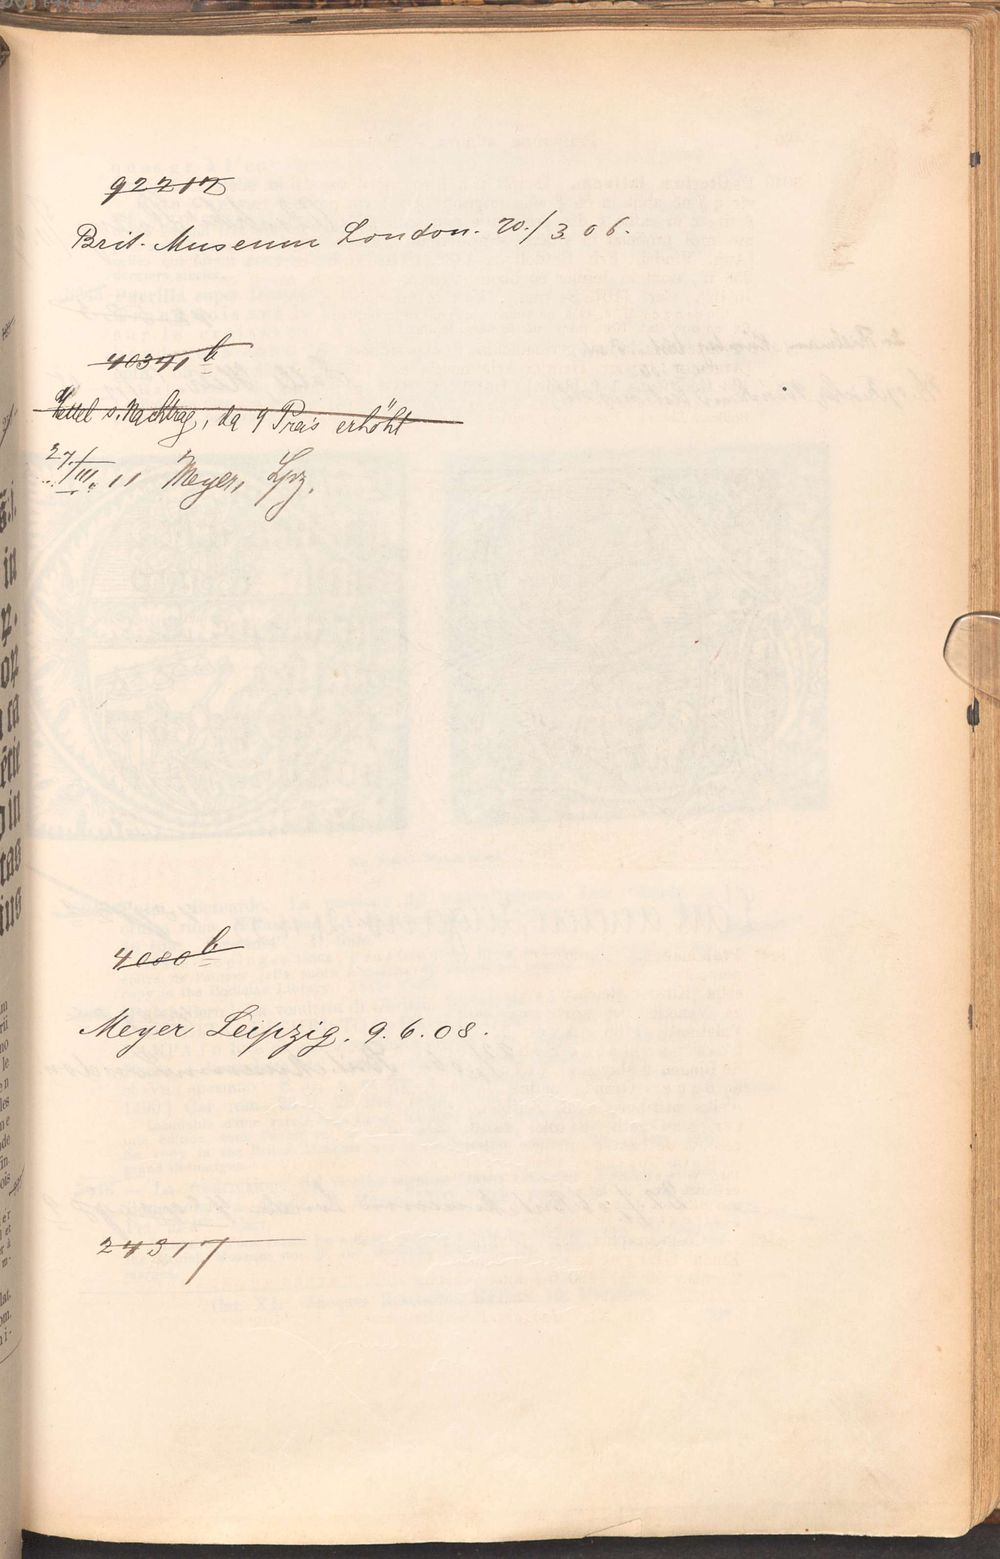 92717
Brit. Museum London. 20./3.06.
40341 b
Zettel s. Nachtrag, da 9 Preis erhöht
27./III. 11 Meyer, Lpz.
4080 b
Meyer Leipzig. 9.6.08.
24317